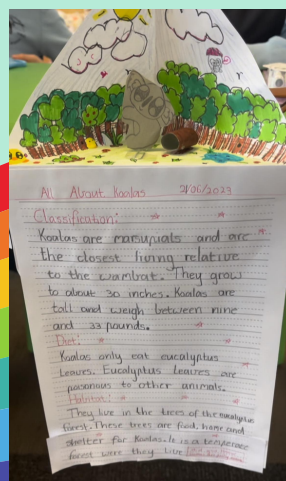 All About Koalas 21/06/2023
Classification:
Koalas are marsupials and are
the closest living relative
to the wombat. They grow
to about 30 inches. Koalas are
tall and weigh between nine
and 33 pounds.
Diet:
Koalas only eat eucalyptus
leaves. Eucalyptus leaves are
poisonous to other animals.
Habitat:
They live in the trees of the eucalyptus
forest. These trees are food, home and
shelter for Koalas. It is a temperate
forest were they live